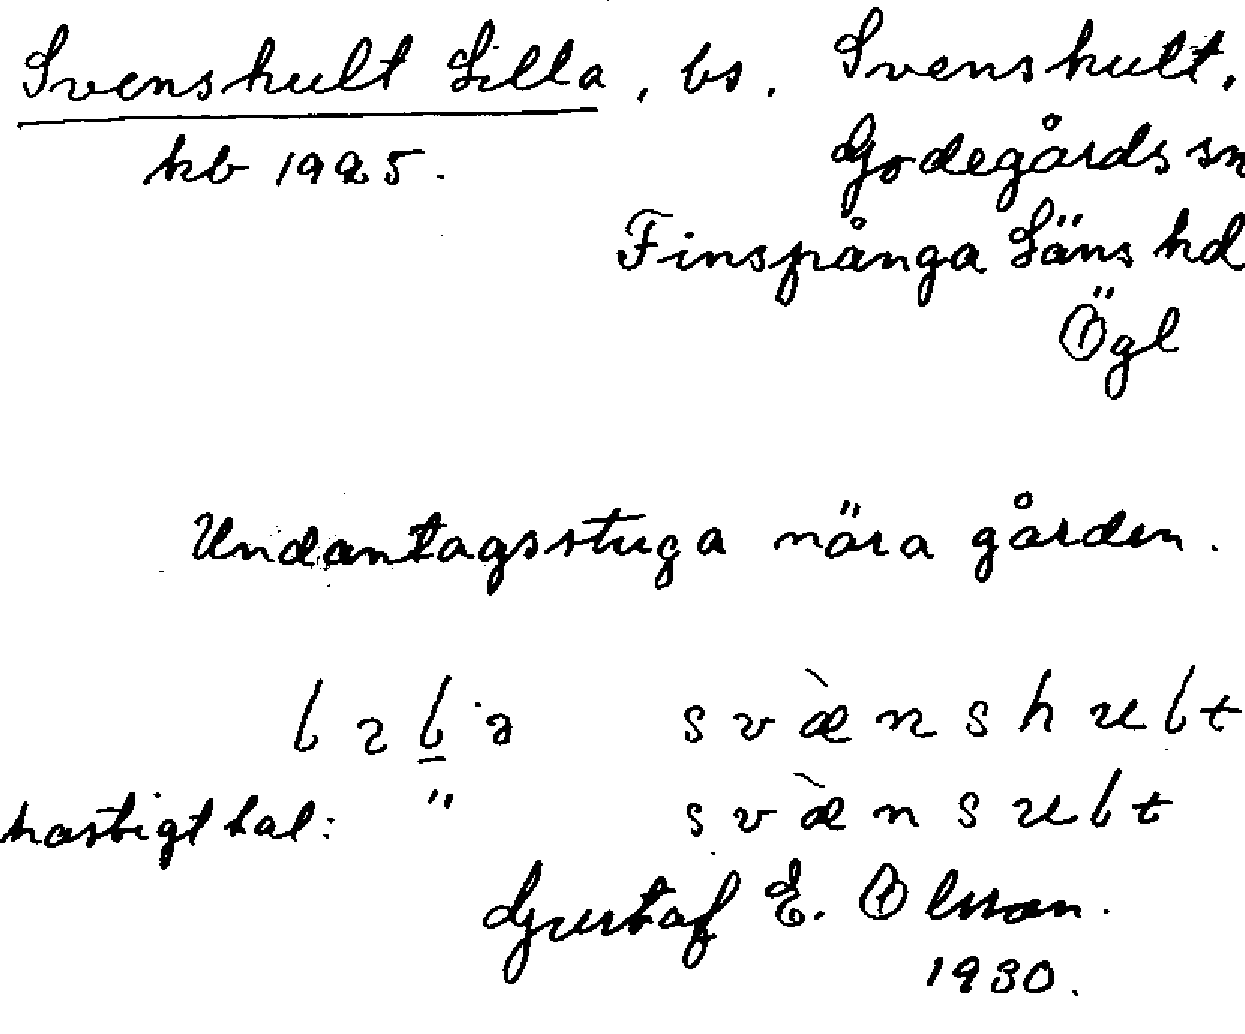 Svenshult Lilla, bs. Svenshult,
hb 1925. Godegårds sn
Finspånga Läns hd
Ögl
Undantagsstuga nära gården.
svæ̀nshult
hastigt tal: " svæ̀nsult
Gustaf E. Olsson.
1930.